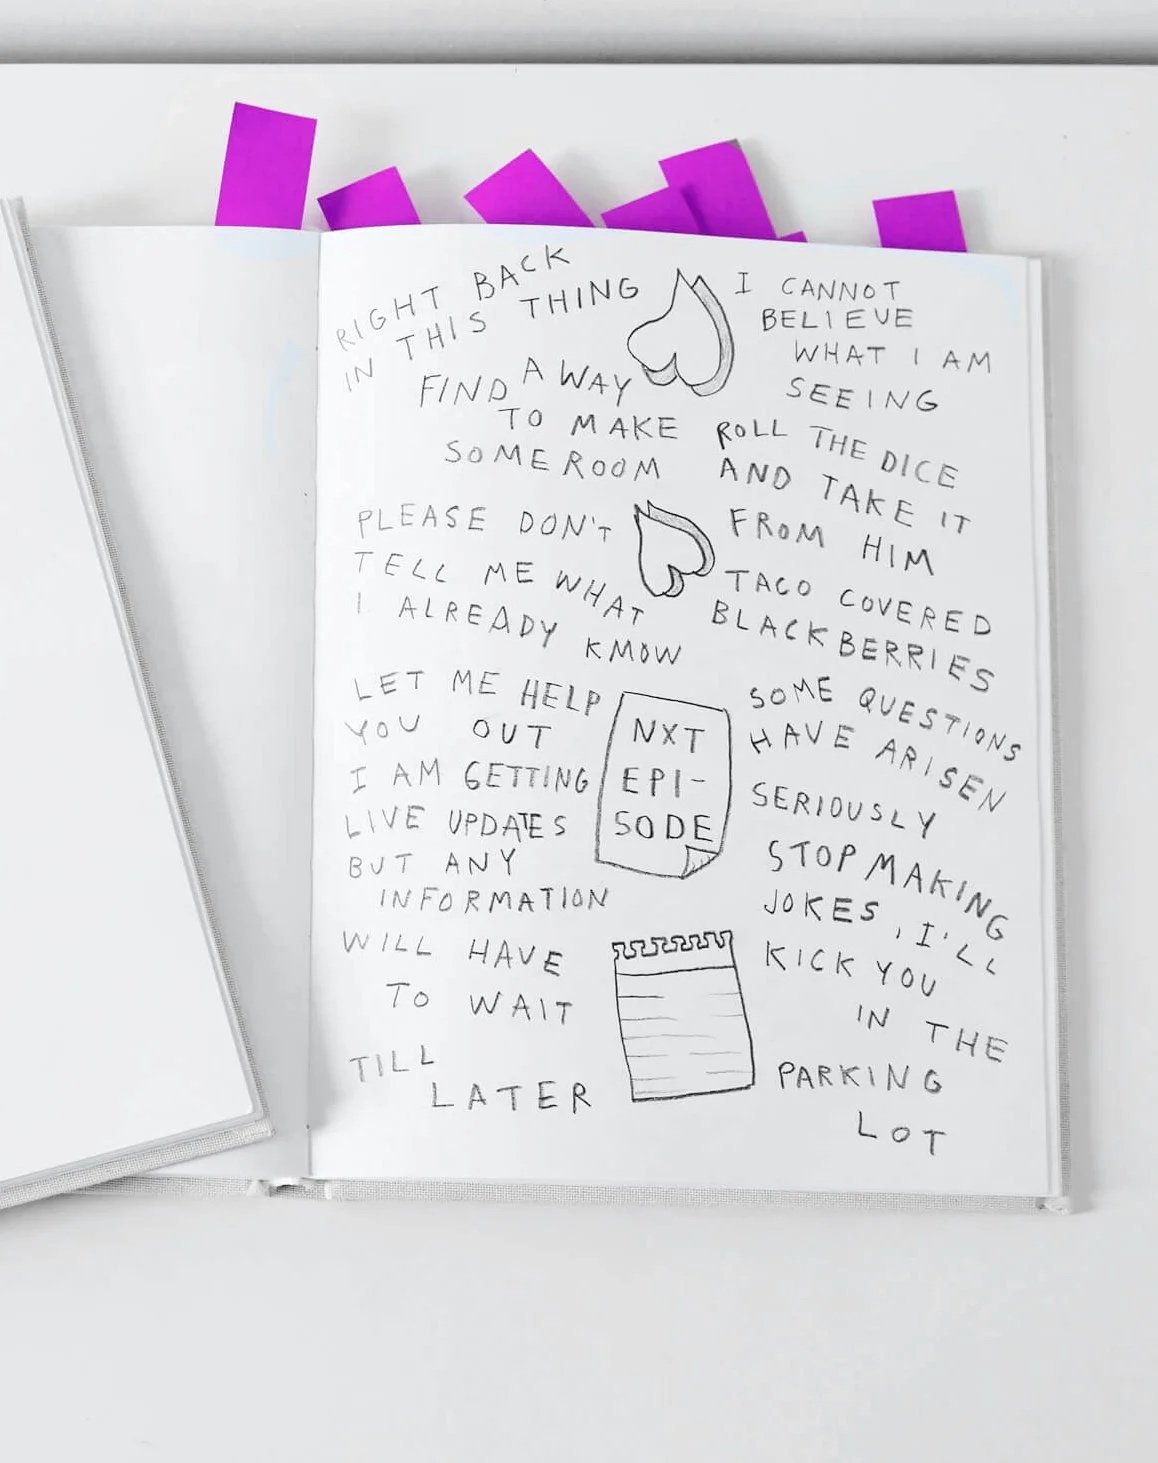 RIGHT BACK
IN THIS THING
FIND A WAY
TO MAKE
SOME ROOM
PLEASE DON'T
TELL ME WHAT
I ALREADY KNOW
LET ME HELP
YOU OUT
I AM GETTING
LIVE UPDATES
BUT ANY
INFORMATION
WILL HAVE
TO WAIT
TILL
LATER
NXT
EPI-
SODE
I CANNOT
BELIEVE
WHAT I AM
SEEING
ROLL THE DICE
AND TAKE IT
FROM HIM
TACO COVERED
BLACKBERRIES
SOME QUESTIONS
HAVE ARISEN
SERIOUSLY
STOP MAKING
JOKES, I'LL
KICK YOU
IN THE
PARKING
LOT